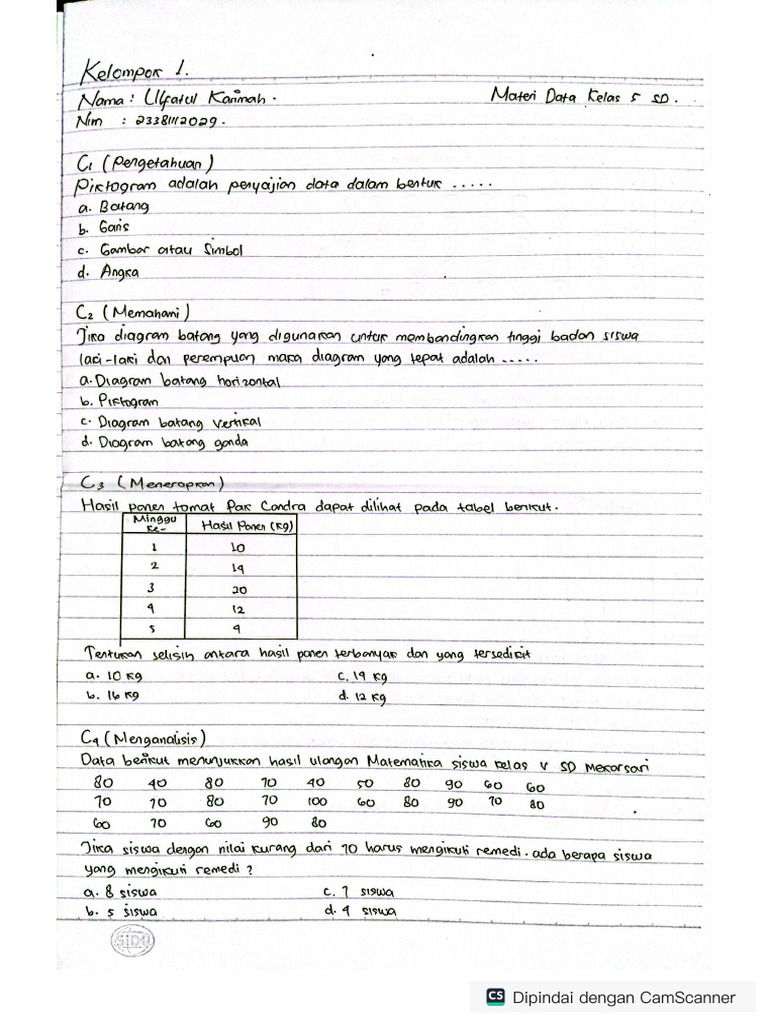 Kelompok 1.
Nama : Ulfatul Karimah.
Materi Data Kelas 5 SD.
Nim : 23381112029.
C1 (Pengetahuan)
Piktogram adalah penyajian data dalam bentuk .....
a. Batang
b. Garis
c. Gambar atau Simbol
d. Angka
C2 (Memahami)
Jika diagram batang yang digunakan untuk membandingkan tinggi badan siswa
laki-laki dan perempuan maka diagram yang tepat adalah .....
a. Diagram batang horizontal
b. Piktogram
c. Diagram batang vertikal
d. Diagram batang ganda
C3 (Menerapkan)
Hasil panen tomat Pak Candra dapat dilihat pada tabel berikut.
Minggu Ke- Hasil Panen (Kg)
1 10
2 14
3 20
4 12
5 4
Tentukan selisih antara hasil panen terbanyak dan yang tersedikit
a. 10 kg c. 14 kg
b. 16 kg d. 12 kg
C4 (Menganalisis)
Data berikut menunjukkan hasil ulangan Matematika siswa kelas V SD Mekarsari
80 40 80 70 40 50 80 90 60 60
70 70 80 70 100 60 80 90 70 80
60 70 60 90 80
Jika siswa dengan nilai kurang dari 70 harus mengikuti remedi. ada berapa siswa
yang mengikuti remedi ?
a. 8 siswa c. 7 siswa
b. 5 siswa d. 4 siswa
SiDU
CS Dipindai dengan CamScanner